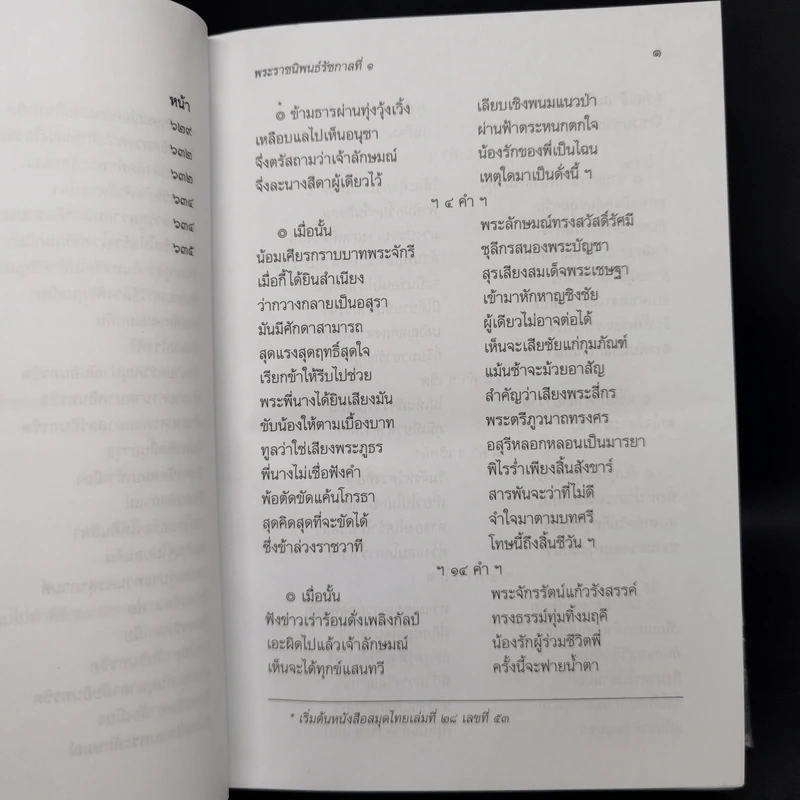 หน้า
๖๒๙
๖๓๒
๖๓๒
๖๓๔
๖๓๔
๖๓๕
พระราชนิพนธ์รัชกาลที่ ๑ ๑
* ๏ ข้ามธารผ่านทุ่งวุ้งเวิ้ง เลียบเชิงพนมแนวป่า
เหลือบแลไปเห็นอนุชา ผ่านฟ้าตระหนกตกใจ
จึ่งตรัสถามว่าเจ้าลักษมณ์ น้องรักของพี่เป็นไฉน
จึ่งละนางสีดาผู้เดียวไว้ เหตุใดมาเป็นดั่งนี้ ฯ
ฯ ๔ คำ ฯ
๏ เมื่อนั้น พระลักษมณ์ทรงสวัสดิ์รัศมี
น้อมเศียรกราบบาทพระจักรี ชุลีกรสนองพระบัญชา
เมื่อกี้ได้ยินสำเนียง สุรเสียงสมเด็จพระเชษฐา
ว่ากวางกลายเป็นอสุรา เข้ามาหักหาญชิงชัย
มันมีศักดาสามารถ ผู้เดียวไม่อาจต่อได้
สุดแรงสุดฤทธิ์สุดใจ เห็นจะเสียชัยแก่กุมภัณฑ์
เรียกข้าให้รีบไปช่วย แม้นช้าจะม้วยอาสัญ
พระพี่นางได้ยินเสียงมัน สำคัญว่าเสียงพระสี่กร
ขับน้องให้ตามเบื้องบาท พระตรีภูวนาถทรงศร
ทูลว่าใช่เสียงพระภูธร อสุรีหลอกหลอนเป็นมารยา
พี่นางไม่เชื่อฟังคำ พิไรร่ำเพียงสิ้นสังขาร์
พ้อตัดขัดแค้นโกรธา สารพันจะว่าที่ไม่ดี
สุดคิดสุดที่จะขัดได้ จำใจมาตามบทศรี
ซึ่งข้าล่วงราชวาที โทษนี้ถึงสิ้นชีวัน ฯ
ฯ ๑๔ คำ ฯ
๏ เมื่อนั้น พระจักรรัตน์แก้วรังสรรค์
ฟังข่าวเร่าร้อนดั่งเพลิงกัลป์ ทรงธรรม์ทุ่มทิ้งมฤคี
เอะผิดไปแล้วเจ้าลักษมณ์ น้องรักผู้ร่วมชีวิตพี่
เห็นจะได้ทุกข์แสนทวี ครั้งนี้จะฟายน้ำตา
* เริ่มต้นหนังสือสมุดไทยเล่มที่ ๒๘ เลขที่ ๕๓